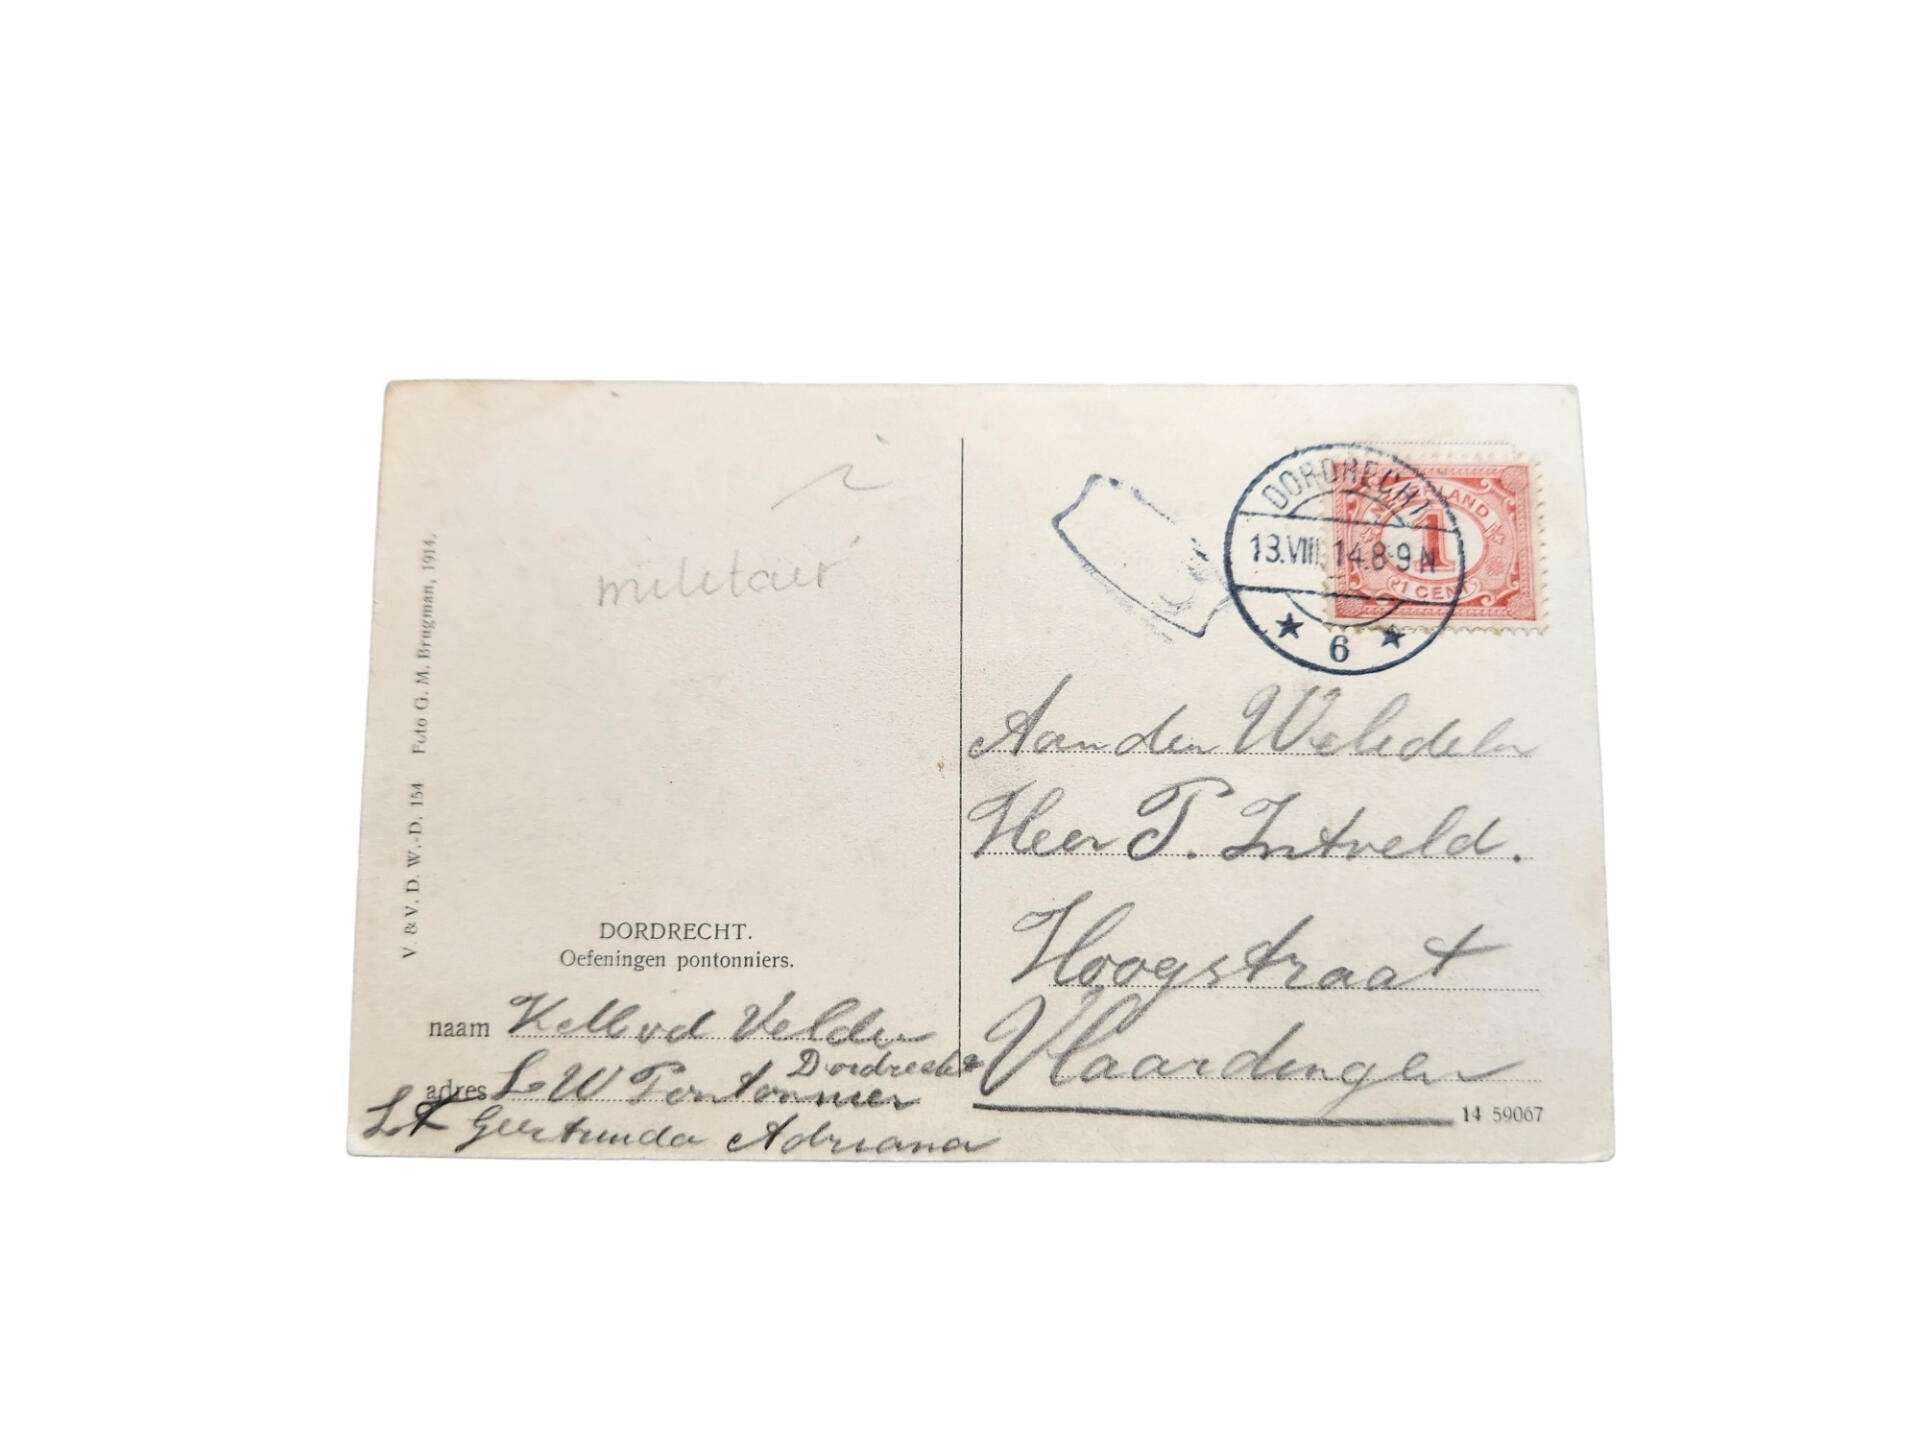 V. & V. D. W.-D. 154 Foto G. M. Brugman, 1914.
militair
DORDRECHT.
Oefeningen pontonniers.
naam v d Velden
Dordrecht
adres L W Pontonnier
Geertruida Adriana
DORDRECHT
13.VIII.14.8-9 N
6
1
1 CENT
Aan den Weledelen
Heer P. Intveld.
Hoogstraat
Vlaardingen
14 59067